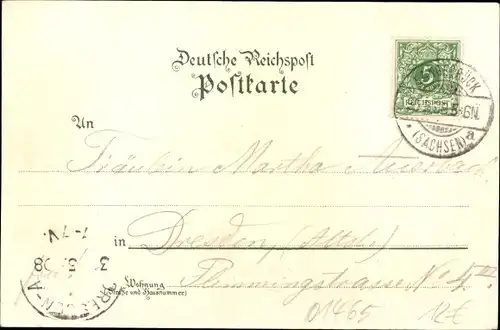 Deutsche Reichspost
Postkarte
5
REICHSPOST
(SACHSEN)
a
An
Fräulein Martha
in Dresden (Altst.)
Wohnung
(Straße und Hausnummer)
Flemmingstrasse No 4 III
DRESDEN-A
3 5. 98
7-7V.
01465
12€